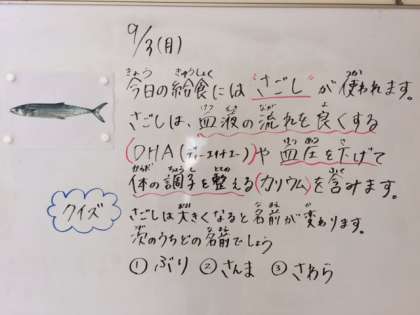 9/3(月)
今日の給食には"さごし"が使われます。
さごしは、血液の流れを良くする
(DHA(ディーエイチエー)や血圧を下げて
体の調子を整える(カリウム)を含みます。
クイズ
さごしは大きくなると名前が変わります。
次のうちどの名前でしょう
① ぶり ② さんま ③ さわら